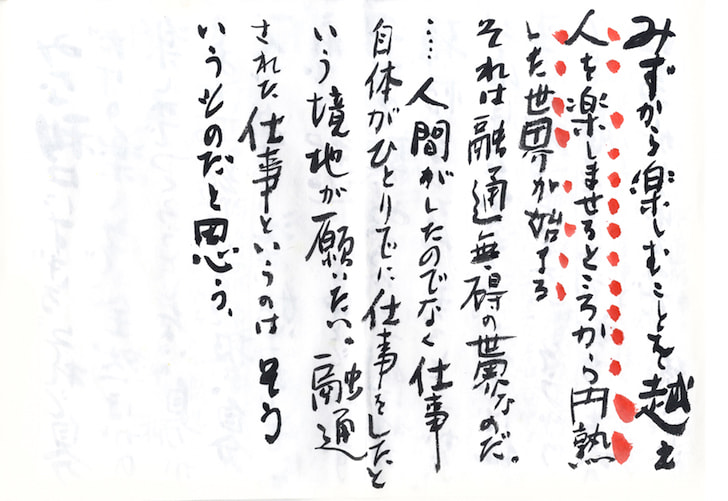 みずから楽しむことを越え
人を楽しませるところから円熟
した世界が始まる
それは融通無碍の世界なのだ。
…… 人間がしたのでなく仕事
自体がひとりでに仕事をしたと
いう境地が願いたい。融通
された仕事というのは そう
いうものだと思う、